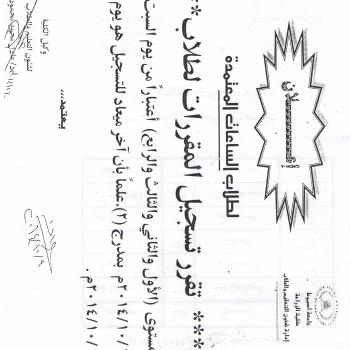 جامعة أسيوط
كلية الزراعة
إدارة شئون التعليم والطلاب
لطلاب الساعات المعتمدة
** تقرر تسجيل المقررات لطلاب **
مستوى (الأول والثاني والثالث والرابع) أعتباراً من يوم السبت
٢٠١٤/١٠/ م بمدرج (٢). علماً بأن آخر ميعاد للتسجيل هو يوم
٢٠١٤/١٠/ م.
يعتمد،،،
وكيل الكلية
لشئون التعليم والطلاب